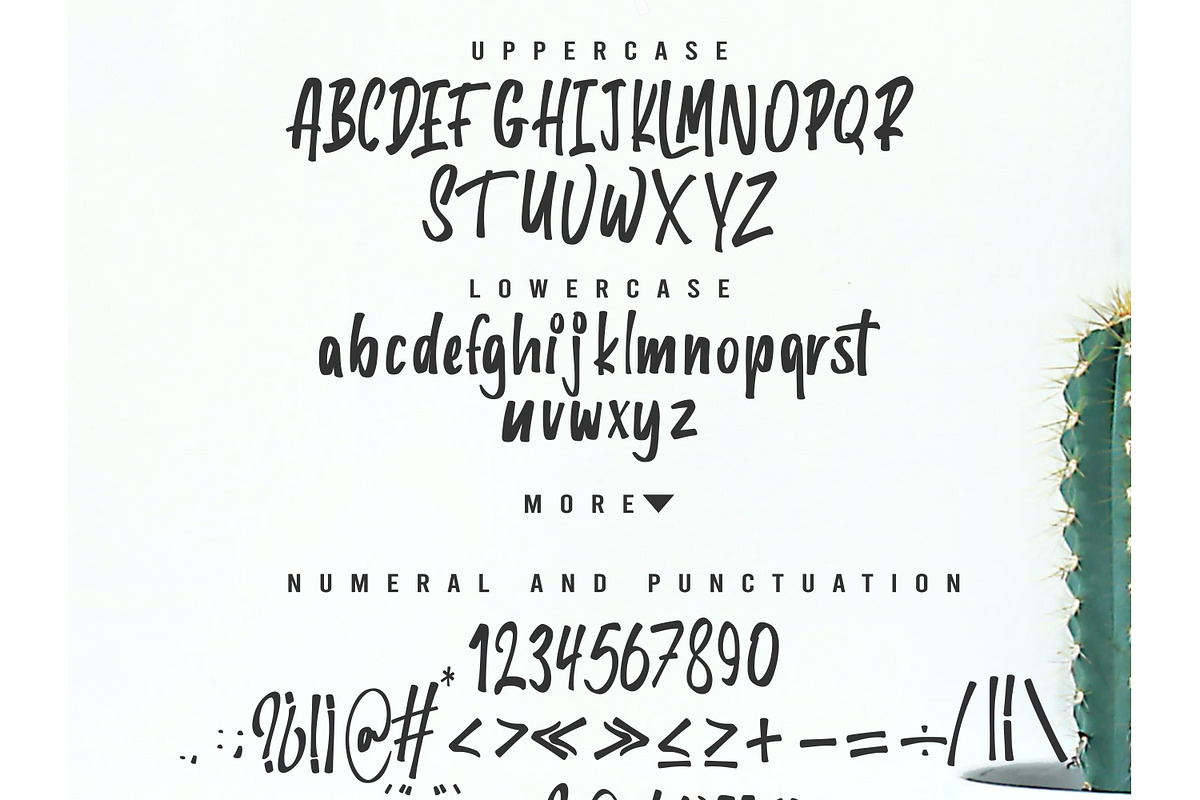 UPPERCASE
ABCDEFGHIJKLMNOPQR
STUVWXYZ
LOWERCASE
abcdefghijklmnopqrst
uvwxyz
MORE▼
NUMERAL AND PUNCTUATION
1234567890
.,:;?¿!¡@#*<>«»≤≥+−=÷/|¦\